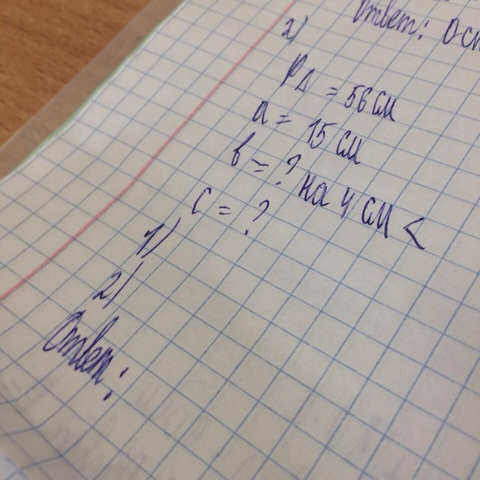 Ответ: Ост
2)
P∆ = 56 см
a = 15 см
b = ? на 4 см <
c = ?
1)
2)
Ответ: